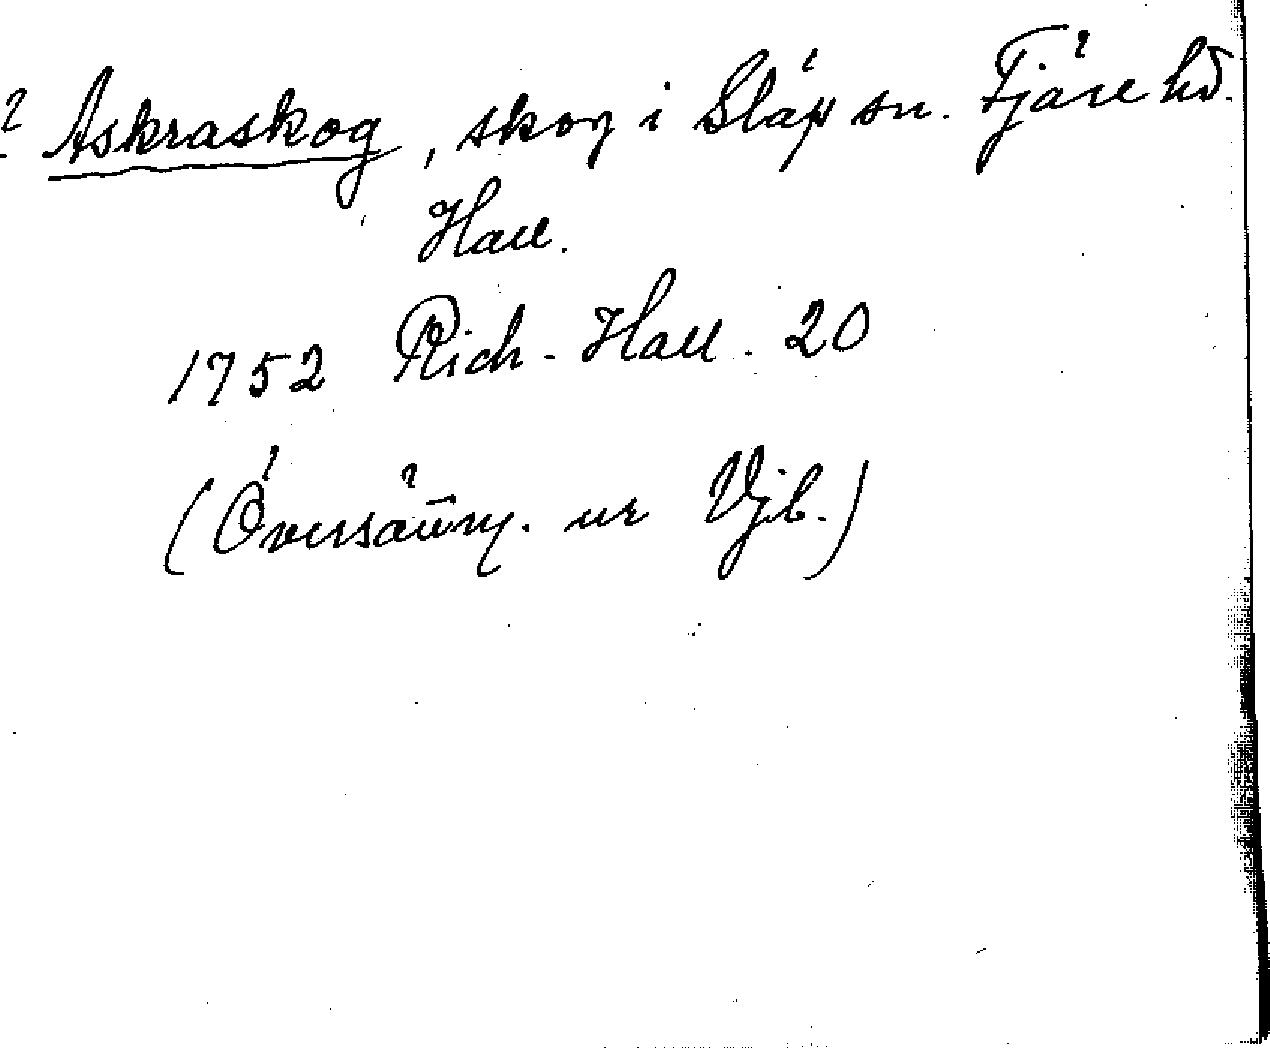 ? Askraskog, skog i Släp sn. Fjäre hd.
Hall.
1752 Rich. Hall. 20
(Översättn. ur Vjb.)